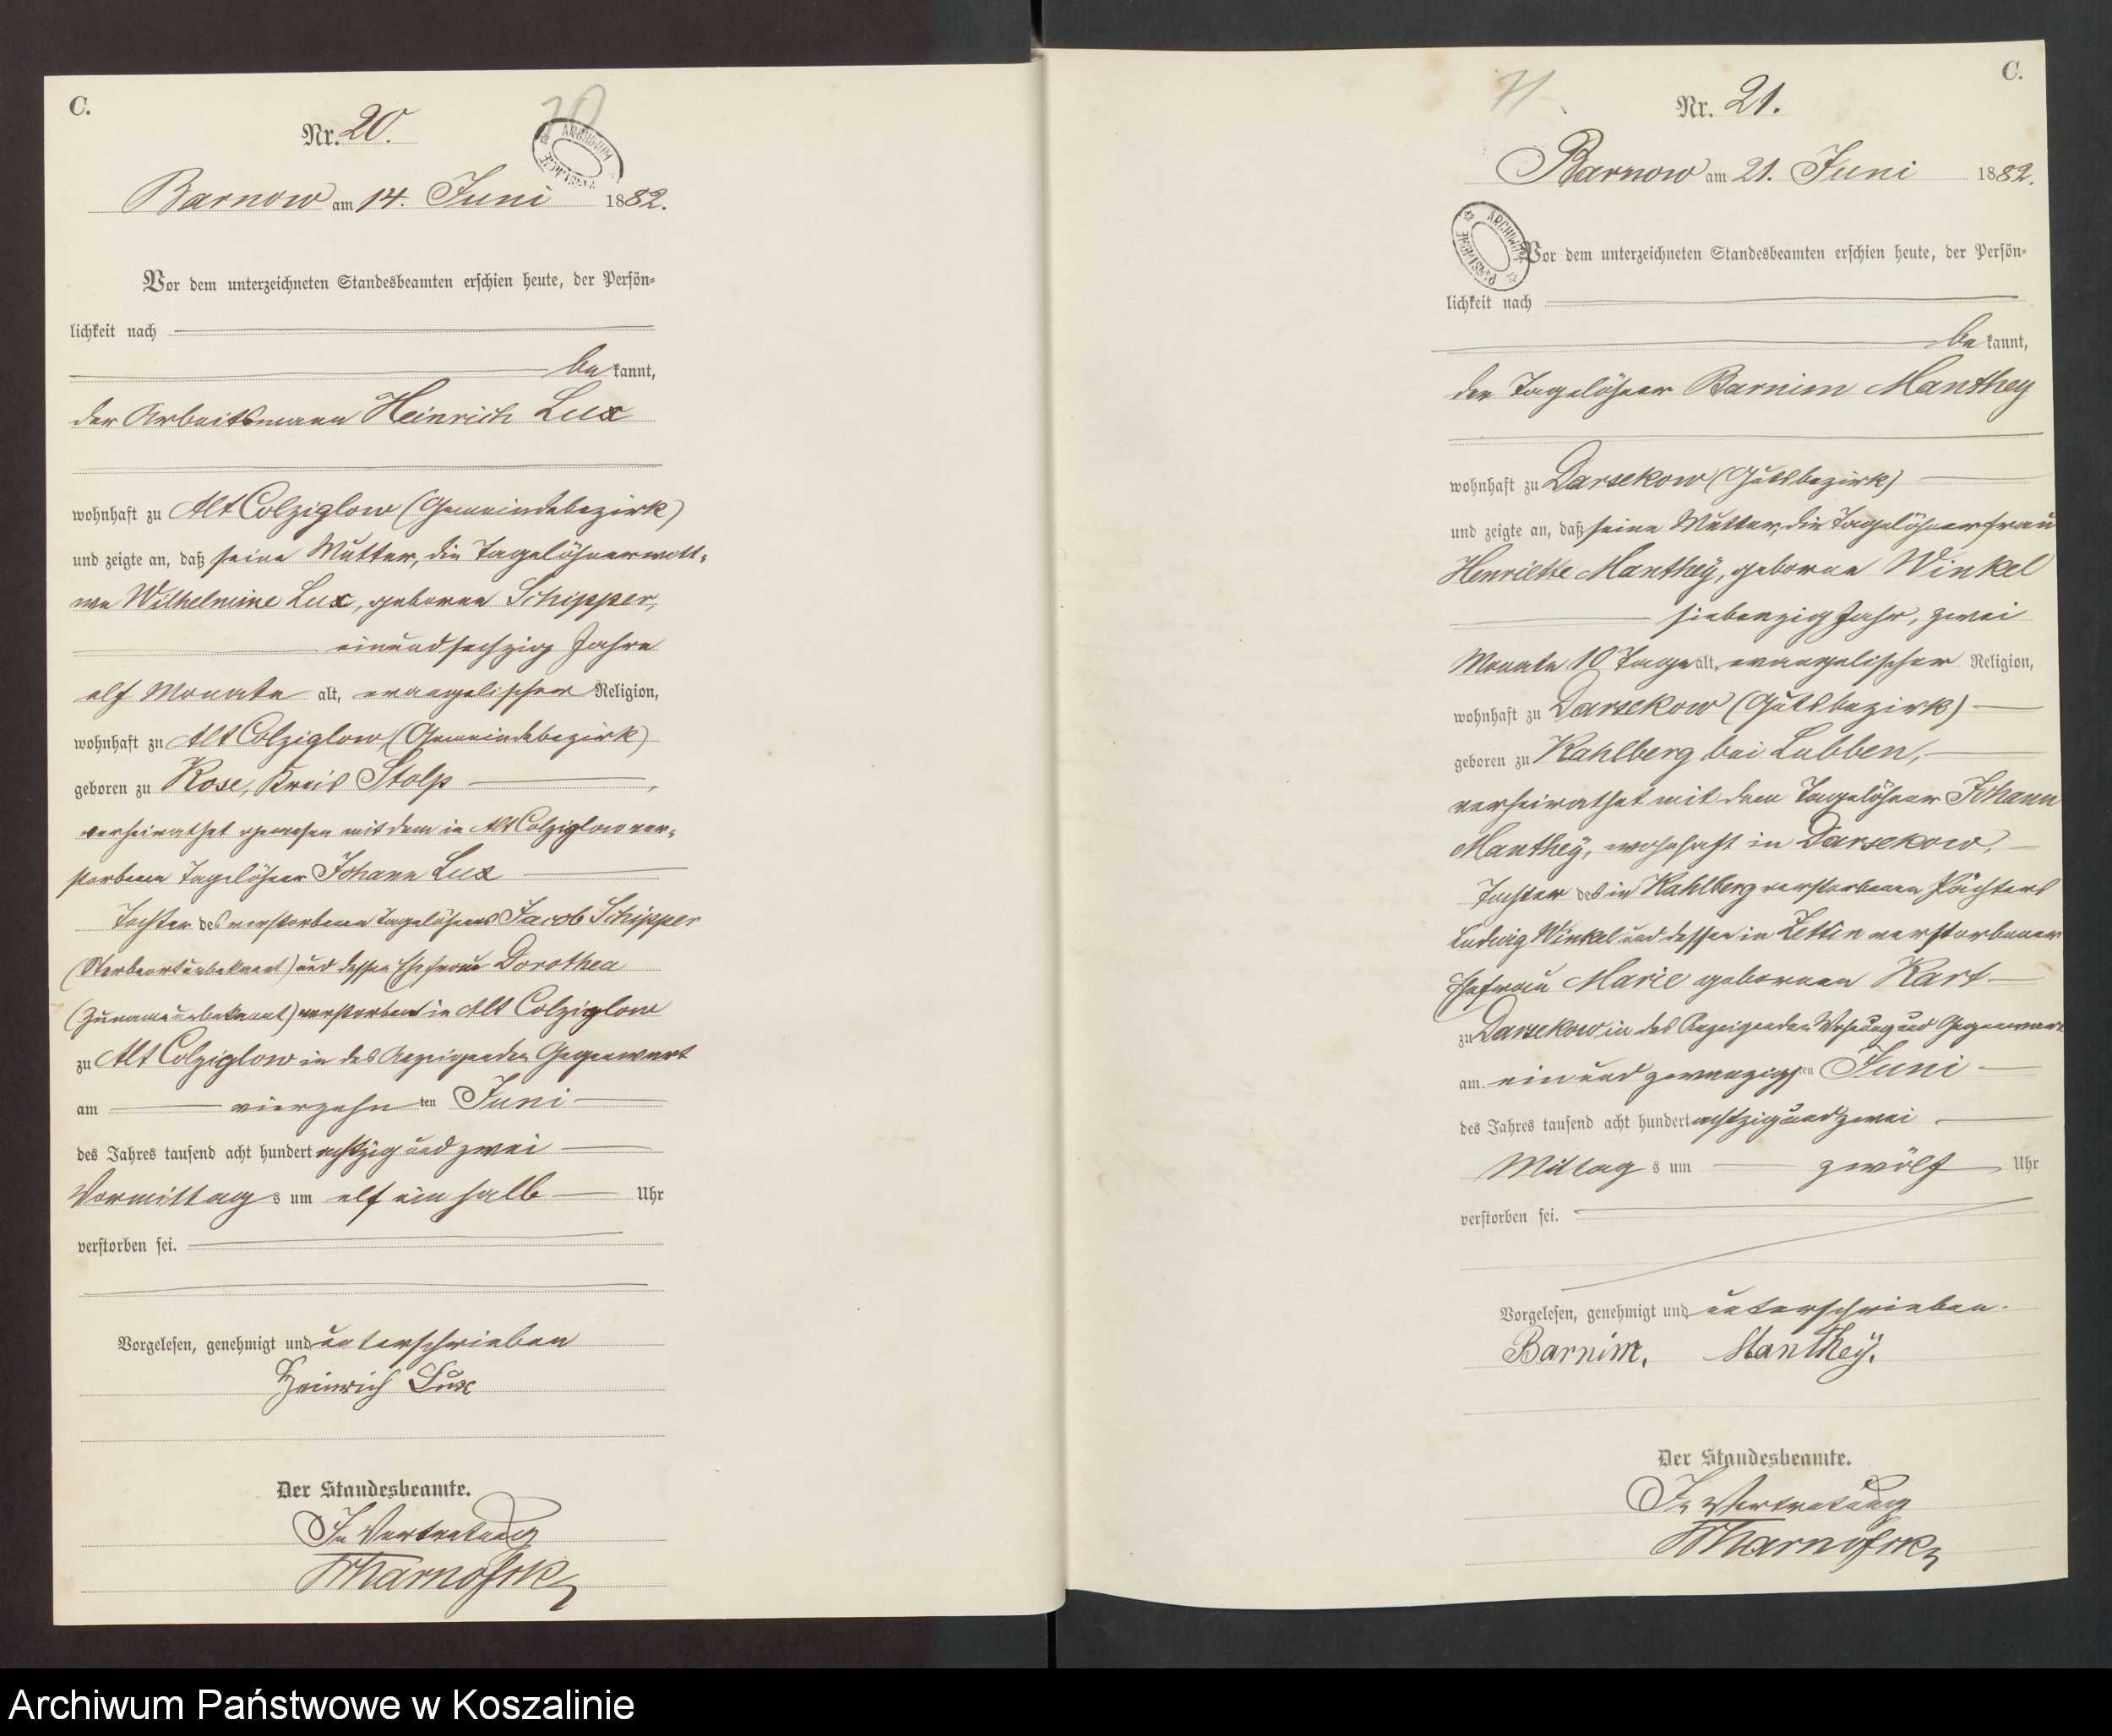 C.
Nr. 20.
70
ARCHIWUM
Barnow am 14. Juni 1882.
Vor dem unterzeichneten Standesbeamten erschien heute, der Persön=
lichkeit nach
bekannt,
der Arbeitsmann Heinrich Lux
wohnhaft zu Alt Colziglow (Gemeindebezirk)
und zeigte an, daß seine Mutter, die Tagelöhnerwitt=
we Wilhelmine Lux, geborne Schipper,
einundsechzig Jahre
elf Monate alt, evangelischer Religion,
wohnhaft zu Alt Colziglow (Gemeindebezirk)
geboren zu Rose, Kreis Stolp,
verheirathet gewesen mit dem in Alt Colziglow ver=
storbenen Tagelöhner Johann Lux
Tochter des verstorbenen Tagelöhners Jacob Schipper
(Sterbeort unbekannt) und dessen Ehefrau Dorothea
(Zuname unbekannt) verstorben in Alt Colziglow
zu Alt Colziglow in des Anzeigenden Gegenwart
am vierzehnten Juni
des Jahres tausend acht hundert achtzig und zwei
Vormittags um elf ein halb Uhr
verstorben sei.
Vorgelesen, genehmigt und unterschrieben
Heinrich Lux
Der Standesbeamte.
In Vertretung
C.
71
Nr. 21.
Barnow am 21. Juni 1882.
ARCHIWUM
Vor dem unterzeichneten Standesbeamten erschien heute, der Persön=
lichkeit nach
bekannt,
der Tagelöhner Barnim Manthey
wohnhaft zu Darsekow (Gutsbezirk)
und zeigte an, daß seine Mutter, die Tagelöhnerfrau
Henriette Manthey, geborne Winkel
siebenzig Jahr, zwei
Monate 10 Tage alt, evangelischer Religion,
wohnhaft zu Darsekow (Gutsbezirk)
geboren zu Kahlberg bei Lubben,
verheirathet mit dem Tagelöhner Johann
Manthey, wohnhaft in Darsekow,
Tochter des in Kahlberg verstorbenen Pächters
Ludwig Winkel und dessen in Zettin verstorbener
Ehefrau Marie gebornen Kart
zu Darsekow in des Anzeigenden Wohnung und Gegenwart
am ein und zwanzigsten Juni
des Jahres tausend acht hundert achtzig und zwei
Mittags um zwölf Uhr
verstorben sei.
Vorgelesen, genehmigt und unterschrieben.
Barnim. Manthey.
Der Standesbeamte.
In Vertretung
Archiwum Państwowe w Koszalinie